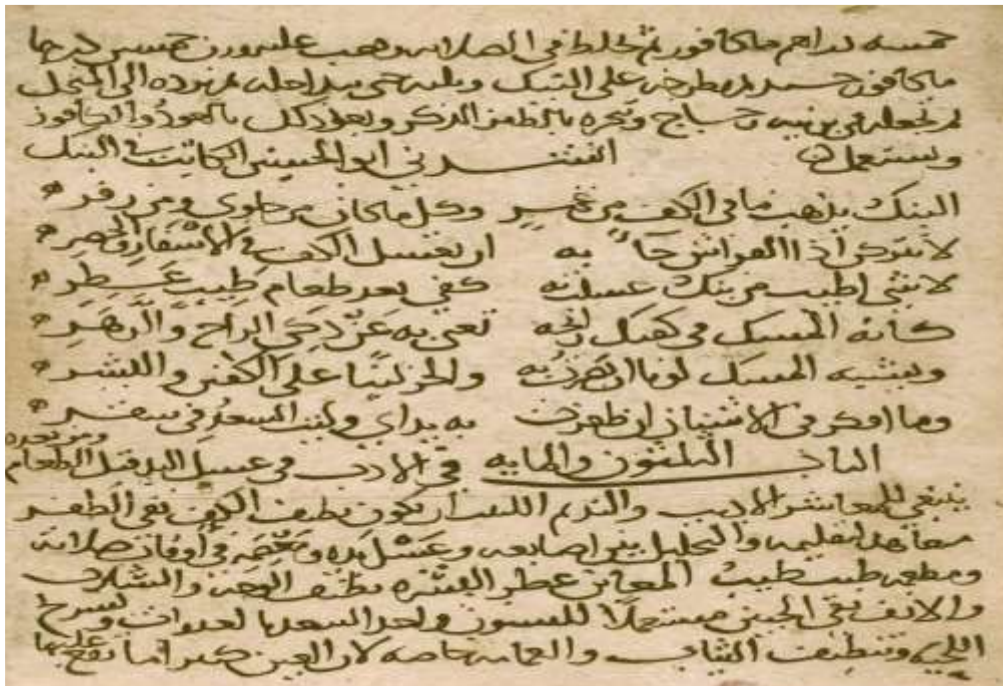 خمسه دراهم ماكافور ثم يخلط في الصلايه وهب عليه وزن خمسين درهما
ماكافور جيد ثم يطرحه على البنك ويلته حتى يتداخله ثم يرده الى المنخل
ثم تجعله في برنيه زجاج وتبخره بالظفر الذكر وبعد ذلك بالعود والكافور
وتستعمله انشدني ابو الحسين الكاتب في البنك
البنك يذهب ما في الكف من غمر وكل ما كان من حلوى ومن زفر
لا تتركن اذا الفراش جا به ان تغسل الكف في الاسفار والحضر
لا شي اطيب من بنك غسلت به كفي بعد طعام طيب عطر
كانه المسك في كفيك رايحه تغنى به عن ذكي الراح والزهر
ويشبه المسك لونا ان ظفرت به والخز لينا على الكفين والبشر
وما افكر في الاشنان ان ظفرت به يداي ولبنت السعد في سفر
الباب الثلثون والمايه في الادب في غسل اليد قبل الطعام
ومن بعده
ينبغي للمعاشر الاديب والنديم اللبيب ان يكون نظيف الكف نقي الظفر
متعاهدا لتقليمه والتخليل بين اصابعه وغسل يده ومعصمه في اوقات صلاته
ومطعمه طيب المغابن عطر البشره نظيف الوجه والشارب
والانف نقي الجبين مستعملا للسنون واحد السعدبا لعدوات وتسريح
اللحيه وتنظيف الثياب والعمامه خاصه لان العين كثيرا ما تقع عليها